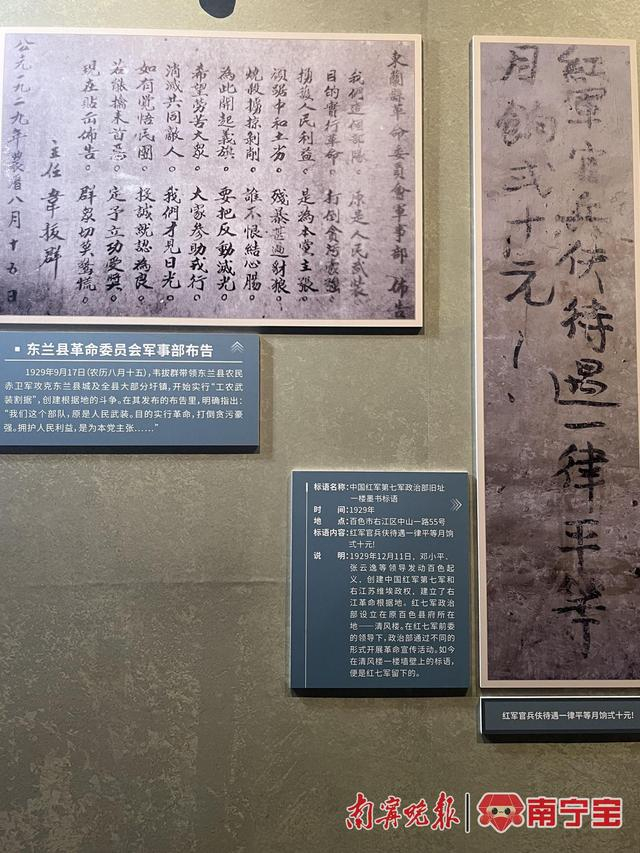 東蘭縣革命委員會軍事部 佈告
我們這個部隊。原是人民武裝。
目的實行革命。打倒貪污豪強。
擁護人民利益。是為本黨主張。
頑踞中和土劣。殘暴甚過豺狼。
燒殺擄掠剝削。誰不恨結心腸。
為此開起義旗。要把反動滅光。
希望勞苦大眾。大家參助我行。
消滅共同敵人。我們才見日光。
如有覺悟民團。投誠就認為良。
若能擒來首惡。定予立功受獎。
現在貼示佈告。群衆切莫驚慌。
主任 韋拔群
公元一九二九年農曆八月十五日
紅軍官兵伕待遇一律平等
月餉弍十元!
东兰县革命委员会军事部布告
1929年9月17日(农历八月十五),韦拔群带领东兰县农民
赤卫军攻克东兰县城及全县大部分圩镇,开始实行“工农武
装割据”,创建根据地的斗争。在其发布的布告里,明确指出:
“我们这个部队,原是人民武装。目的实行革命,打倒贪污豪
强。拥护人民利益,是为本党主张……”
标语名称:中国红军第七军政治部旧址
一楼墨书标语
时 间:1929年
地 点:百色市右江区中山一路55号
标语内容:红军官兵伕待遇一律平等月饷
弍十元!
说 明:1929年12月11日,邓小平、
张云逸等领导发动百色起
义,创建中国红军第七军和
右江苏维埃政权,建立了右
江革命根据地。红七军政治
部设立在原百色县府所在
地——清风楼。在红七军前委
的领导下,政治部通过不同的
形式开展革命宣传活动。如今
在清风楼一楼墙壁上的标语,
便是红七军留下的。
红军官兵伕待遇一律平等月饷弍十元!
南宁晚报 南宁宝